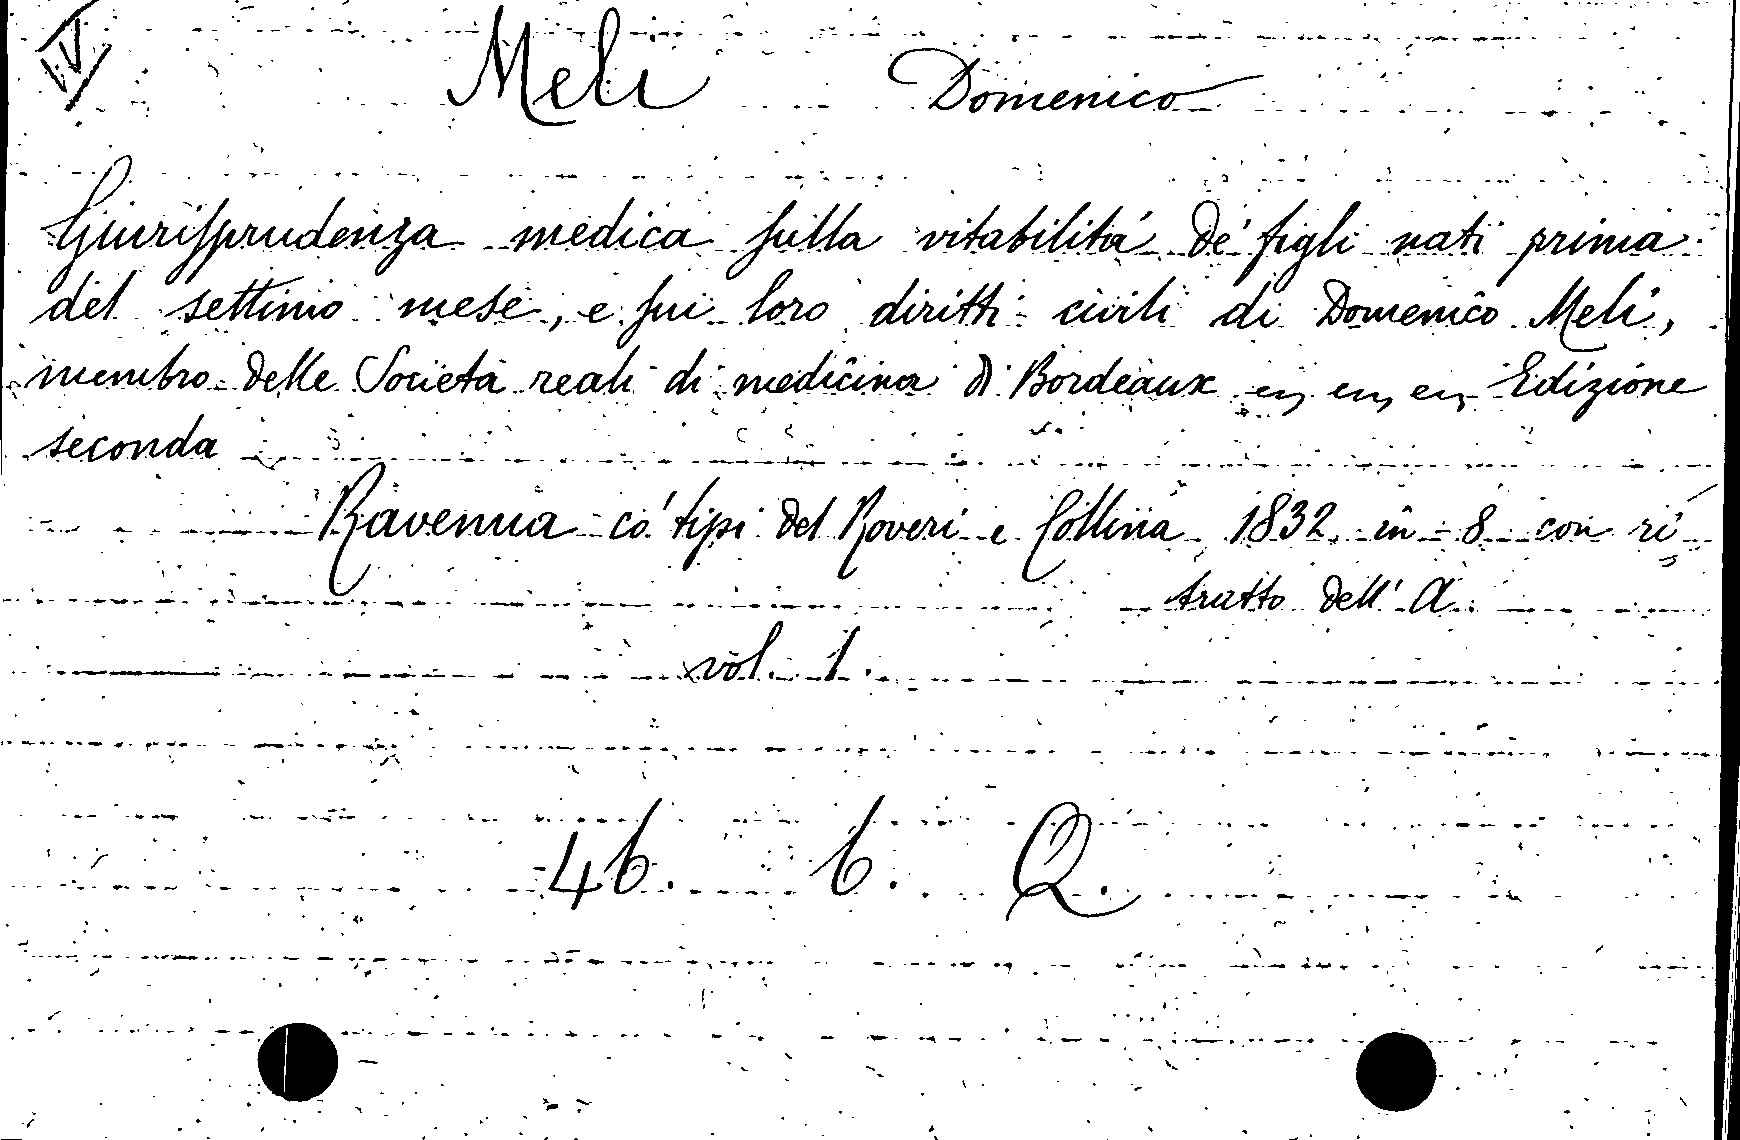 IV
Meli Domenico
Giurisprudenza medica sulla vitabilitá de' figli nati prima
del settimo mese, e sui loro diritti civili di Domenico Meli,
membro delle Società reali di medicina di Bordeaux ec, ec, ec, Edizione
seconda
Ravenna co' tipi del Roveri e Collina 1832 in 8 con ri=
tratto dell' A.
vol. 1.
46. 6. Q.